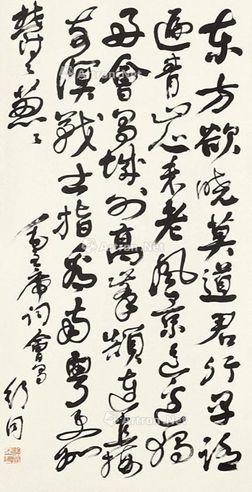 东方欲晓莫道君行早踏
遍青山人未老風景这边独
好會昌城外高峯顛連直接
东溟战士指看南粤更加
鬱々葱々
毛主席词會昌
舒同